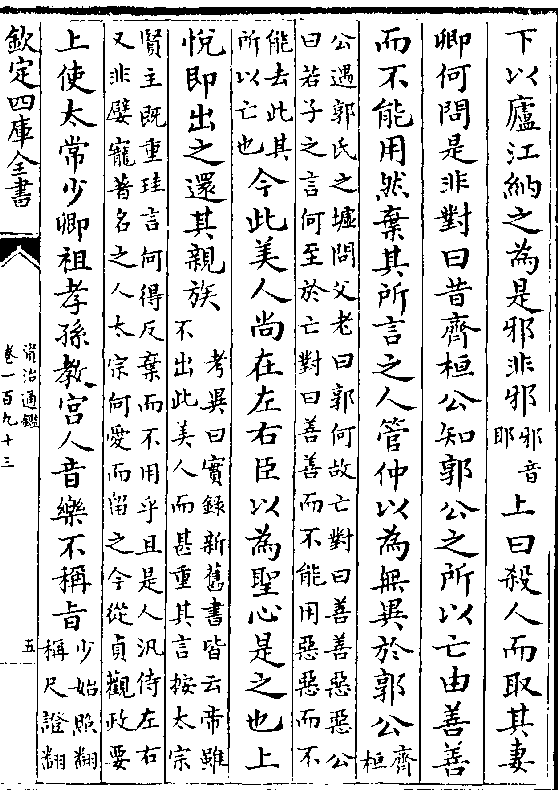 下以廬江納之為是邪非邪邪音
耶上曰殺人而取其妻
卿何問是非對曰昔齊桓公知郭公之所以亡由善善
而不能用然棄其所言之人管仲以為無異於郭公齊
桓
公遇郭氏之墟問父老曰郭何故亡對曰善善惡惡公
曰若子之言何至於亡對曰善善而不能用惡惡而不
能去此其
所以亡也今此美人尚在左右臣以為聖心是之也上
悅即出之還其親族考異曰實録新舊書皆云帝雖
不出此美人而甚重其言按太宗
賢主既重珪言何得反棄而不用乎且是人汎侍左右
又非嬖寵著名之人太宗何愛而留之今從貞觀政要
上使太常少卿祖孝孫教宫人音樂不稱旨少始照翻
稱尺證翻
欽定四庫全書
資治通鑑
卷一百九十三
五